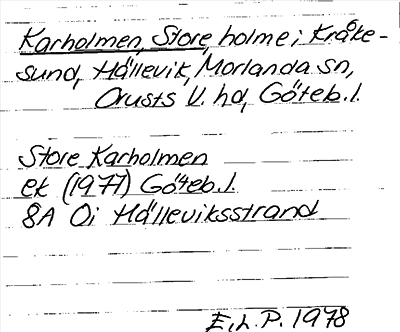 Karholmen, Store, holme i Kråke-
sund, Hällevik, Morlanda sn,
Orusts V. hd, Göteb. l.
Store Karholmen
ek (1977) Göteb. l.
8A Oi Hälleviksstrand
E.h. P. 1978